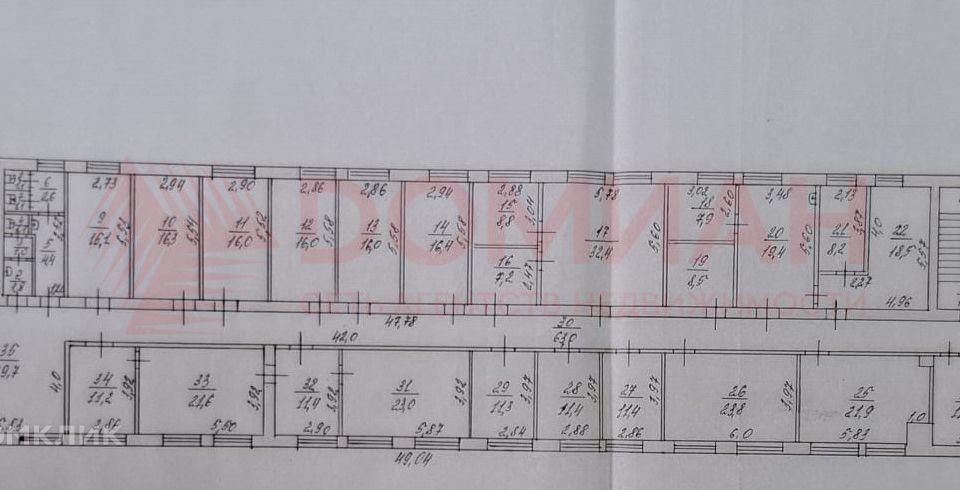 2,73
2,94
2,90
2,86
2,86
2,94
2,88
5,78
3,02
3,48
2,13
6
2,6
9
16,1
10
16,3
5,54
11
16,0
5,52
12
16,0
5,58
13
16,0
5,58
14
16,4
5,58
15
8,8
3,04
16
7,2
2,47
17
32,4
5,60
18
7,9
2,60
19
8,5
20
19,4
5,60
21
8,2
3,87
2,27
4,0
22
18,5
5,57
4,96
5
4,4
ДОМИАН
СЕТЬ АГЕНТСТВ НЕДВИЖИМОСТИ
47,78
42,0
30
63,0
35
4,0
34
11,2
3,92
2,86
33
21,6
3,92
5,50
32
11,4
3,92
2,90
31
23,0
3,92
5,87
29
11,3
3,97
2,84
28
11,4
3,97
2,88
27
11,4
3,97
2,86
26
23,8
3,97
6,0
25
21,9
1,0
5,83
49,04
ОМКЛИК